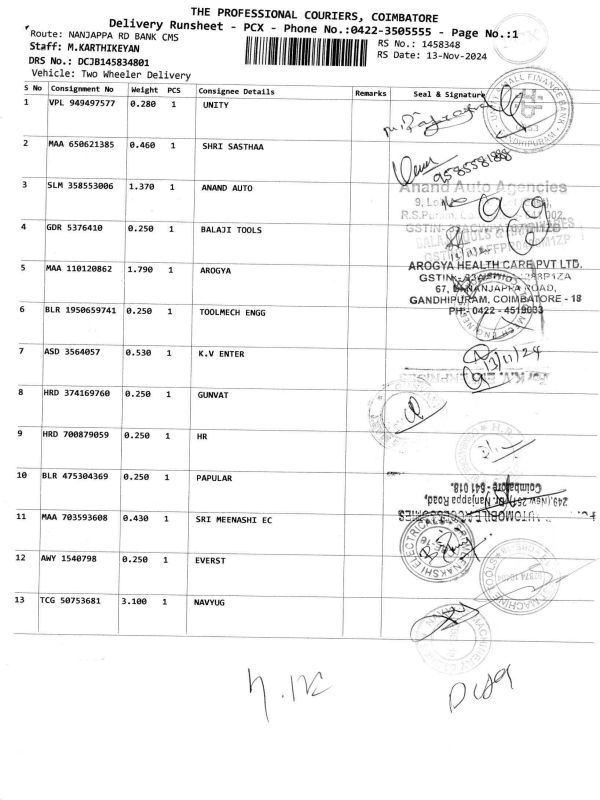 THE PROFESSIONAL COURIERS, COIMBATORE
Delivery Runsheet - PCX - Phone No.:0422-3505555 - Page No.:1
Route: NANJAPPA RD BANK CMS
RS No.: 1458348
Staff: M.KARTHIKEYAN
RS Date: 13-Nov-2024
DRS No.: DCJB145834801
Vehicle: Two Wheeler Delivery
S No Consignment No Weight PCS Consignee Details Remarks Seal & Signature
1 VPL 949497577 0.280 1 UNITY
2 MAA 650621385 0.460 1 SHRI SASTHAA
9585581888
3 SLM 358553006 1.370 1 ANAND AUTO
Anand Auto Agencies
4 GDR 5376410 0.250 1 BALAJI TOOLS
5 MAA 110120862 1.790 1 AROGYA
AROGYA HEALTH CARE PVT LTD.
GANDHIPURAM, COIMBATORE - 18
PH:- 0422 - 4519033
6 BLR 1950659741 0.250 1 TOOLMECH ENGG
7 ASD 3564057 0.530 1 K.V ENTER
13/11/24
8 HRD 374169760 0.250 1 GUNVAT
9 HRD 700879059 0.250 1 HR
10 BLR 475304369 0.250 1 PAPULAR
Coimbatore - 641 018.
11 MAA 703593608 0.430 1 SRI MEENASHI EC
12 AWY 1540798 0.250 1 EVERST
13 TCG 50753681 3.100 1 NAVYUG